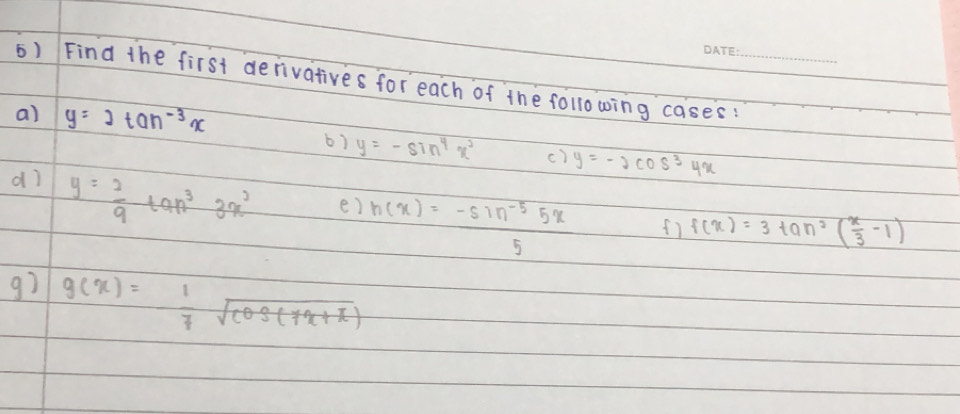 DATE:
5) Find the first derivatives for each of the following cases:
a) y = 2 tan⁻³ x
b) y = - sin⁴ x² c) y = -2 cos³ 4x
d) y = 2/9 tan³ 3x² e) h(x) = -sin⁻⁵ 5x / 5 f) f(x) = 3 tan² (x/3 - 1)
g) g(x) = 1/7 √cos(7x+π)